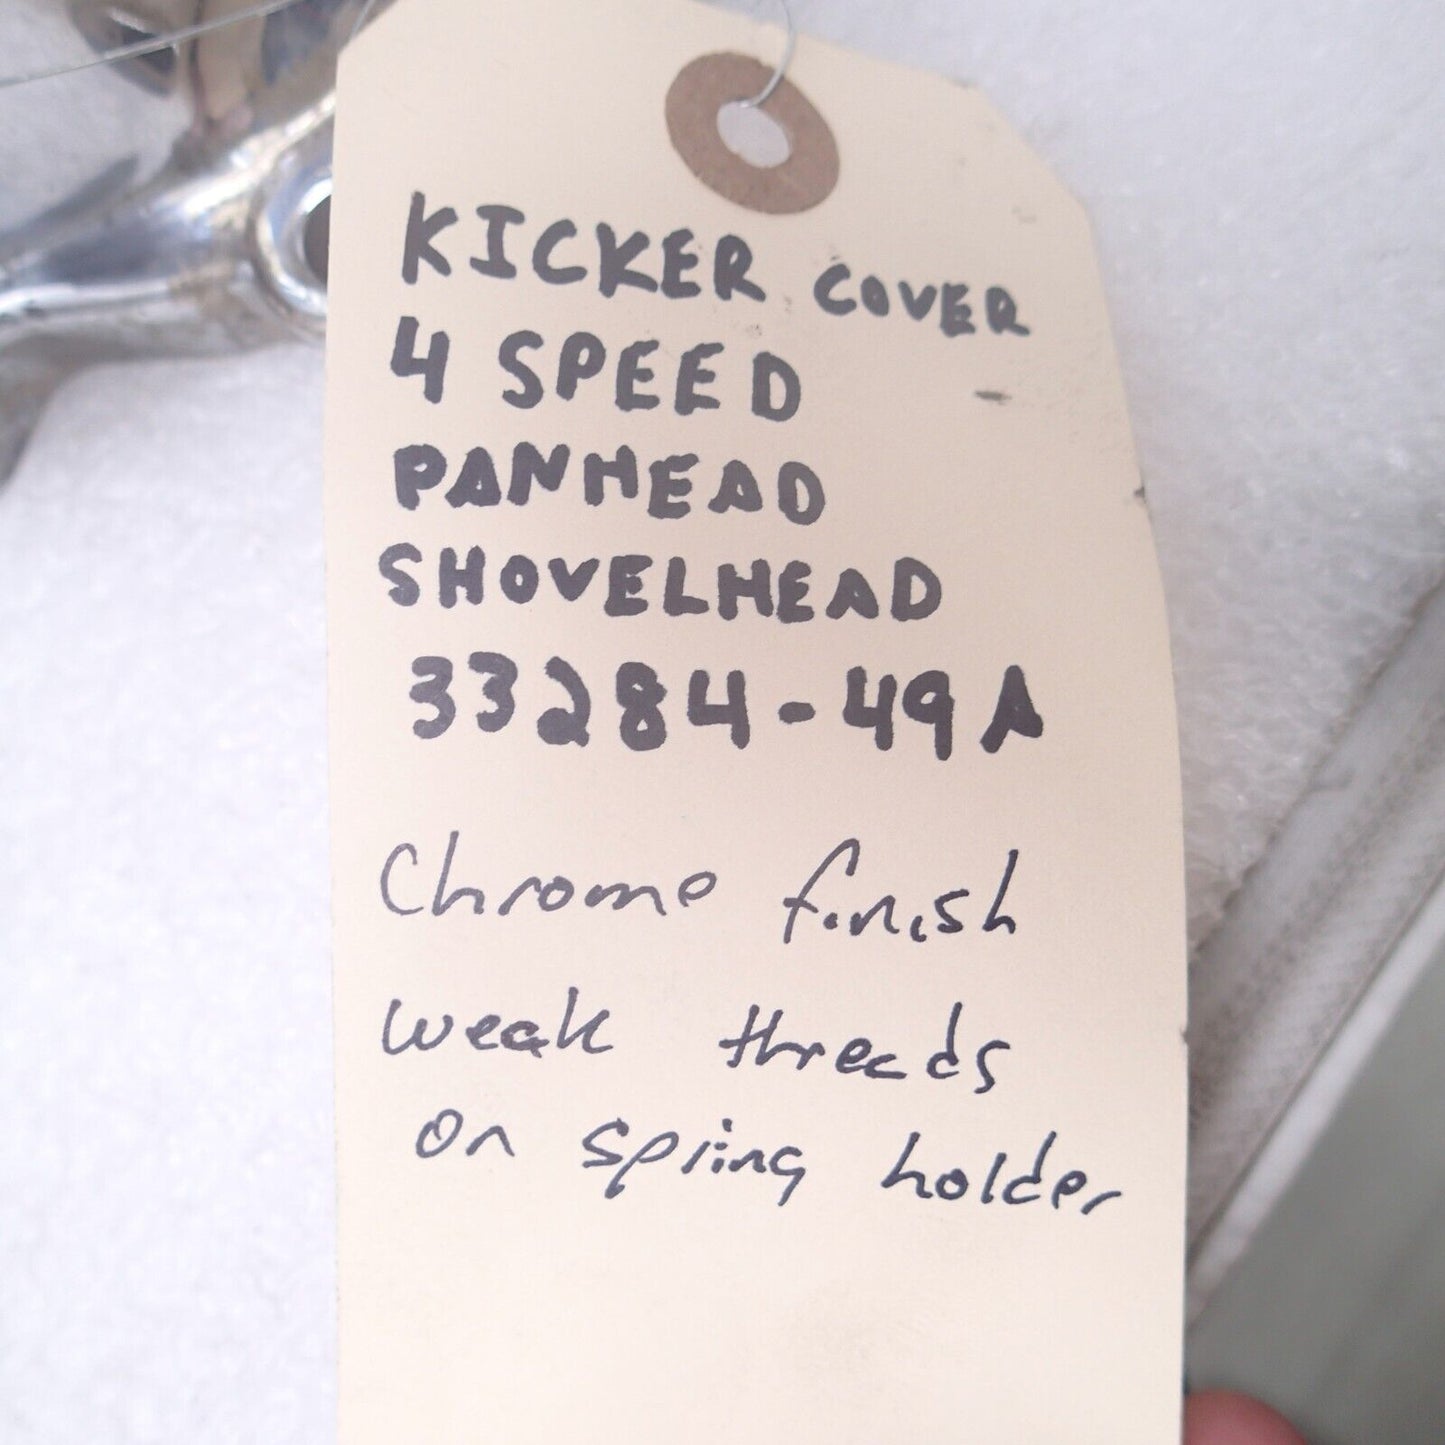 KICKER COVER
4 SPEED
PANHEAD
SHOVELHEAD
33284-49A
Chrome finish
weak threads
on spring holder